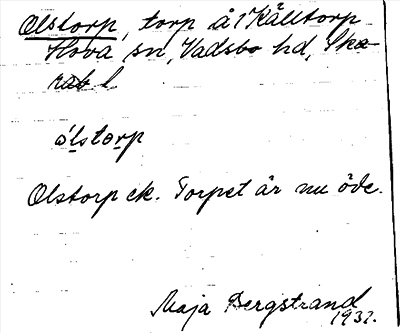 Olstorp, torp å 1 Källtorp
Hova sn, Vadsbo hd, Ska-
rab l.
ólstorp
Olstorp ek. Torpet är nu öde.
Maja Bergstrand
1932.